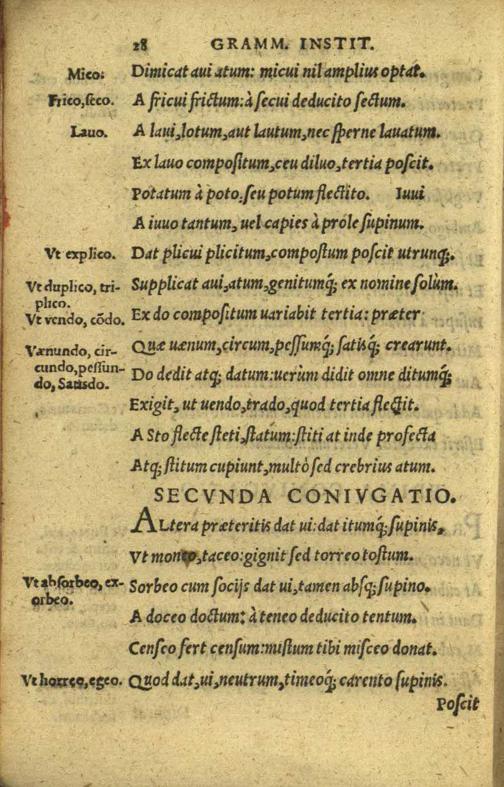 28 GRAMM. INSTIT.
Mico: Dimicat aui atum: micui nil amplius optat.
Frico, seco. A fricui frictum: à secui deducito sectum.
Lauo. A laui, lotum, aut lautum, nec sperne lauatum.
Ex lauo compositum, ceu diluo, tertia poscit.
Potatum à poto, seu potum flectito. Iuui
A iuuo tantum, uel capies à prole supinum.
Vt explico. Dat plicui plicitum, compostum poscit utrunq;.
Vt duplico, tri-
plico. Supplicat aui, atum, genitumq; ex nomine solùm.
Vt vendo, cōdo. Ex do compositum uariabit tertia: præter
Vænundo, cir- Quæ uænum, circum, pessumq; satisq; crearunt.
cundo, pessun-
do, Satisdo. Do dedit atq; datum: uerùm didit omne ditumq;
Exigit, ut uendo, trado, quod tertia flectit.
A Sto flecte steti, statum: stiti at inde profecta
Atq; stitum cupiunt, multò sed crebrius atum.
SECVNDA CONIVGATIO.
ALtera præteritis dat ui: dat itumq; supinis,
Vt moneo, taceo: gignit sed torreo tostum.
Vt absorbeo, ex-
orbeo. Sorbeo cum socijs dat ui, tamen absq; supino.
A doceo doctum: à teneo deducito tentum.
Censeo fert censum: mistum tibi misceo donat.
Vt horreo, egeo. Quod dat, ui, neutrum, timeoq; carento supinis.
Poscit